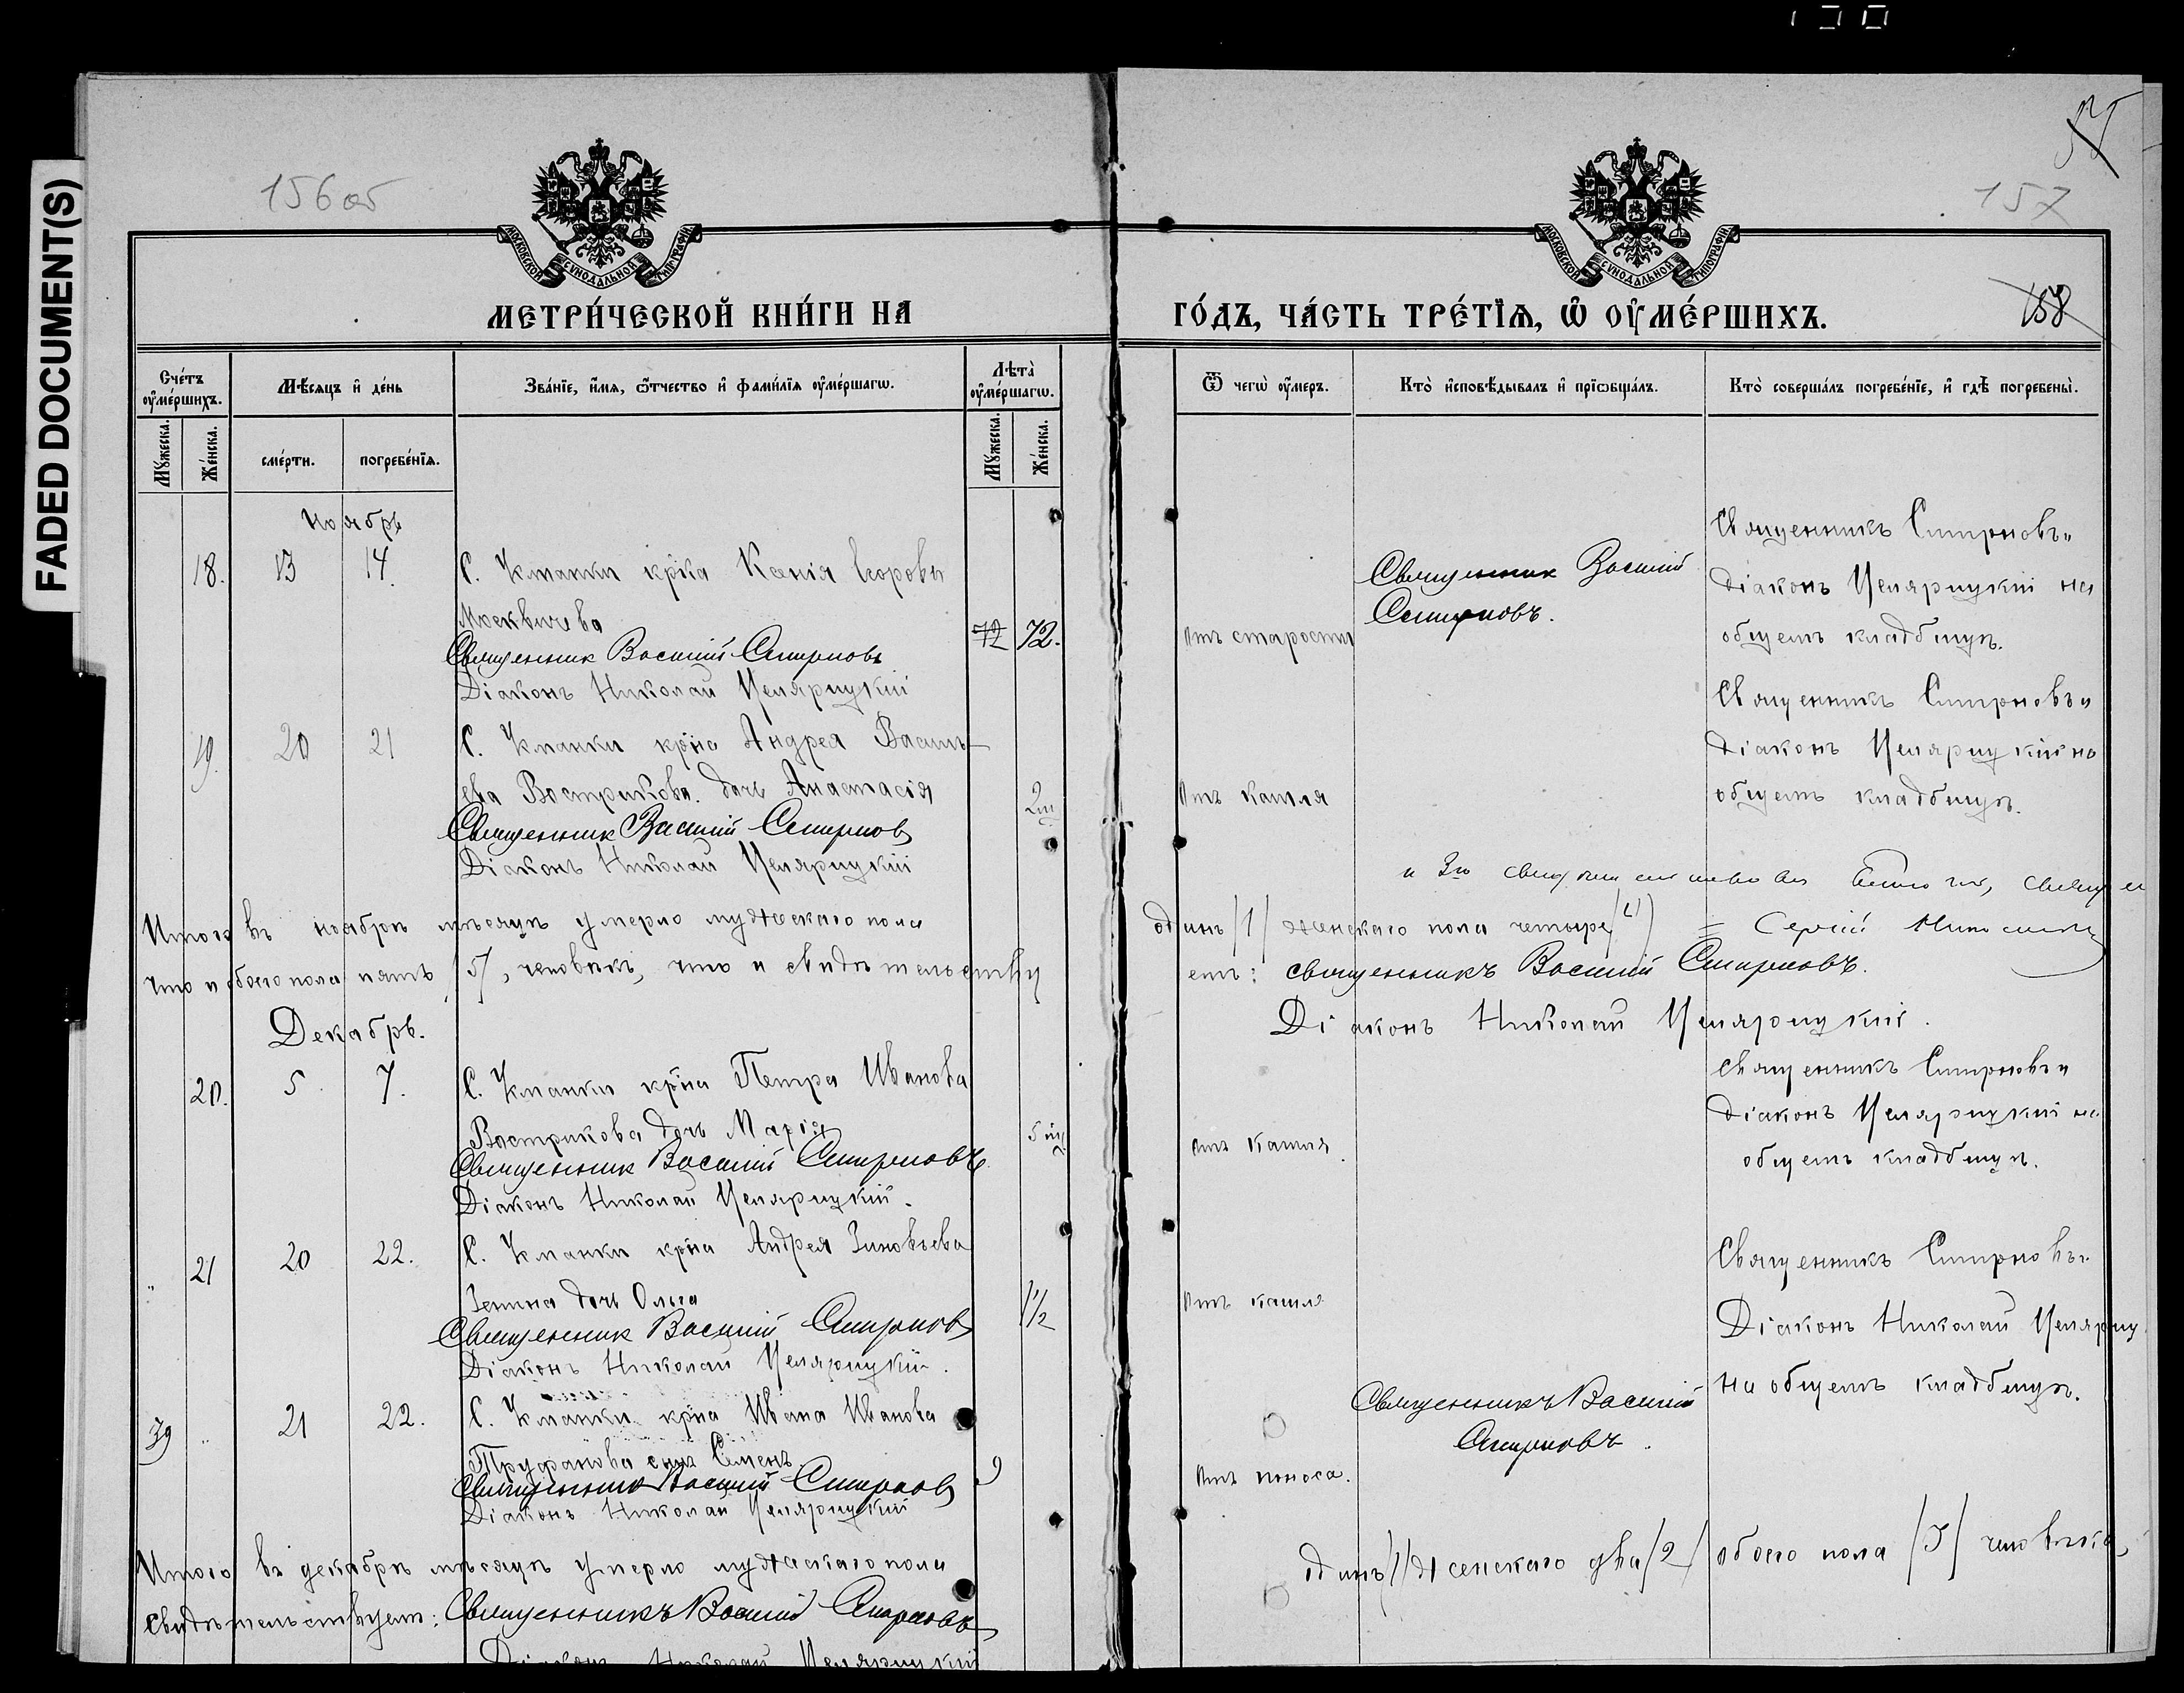 FADED DOCUMENT(S)
156 об
157
158
МОСКОВСКОЙ СУНОДАЛЬНОЙ ТИПОГРАФІИ
МОСКОВСКОЙ СУНОДАЛЬНОЙ ТИПОГРАФІИ
МЕТРИ́ЧЕСКОЙ КНИ́ГИ НА ГО́ДЪ, ЧА́СТЬ ТРЕ́ТЇѦ, Ѡ ОУ҆МЕ́РШИХЪ.
Сче́тъ оу҆ме́ршихъ.
Мѣ́сяцъ и҆ де́нь
Зва́нїе, и҆́мя, ѻ҆́тчество и҆ фами́лїя оу҆ме́ршагѡ.
Лѣ́та оу҆ме́ршагѡ.
Ѿ чегѡ̀ оу҆́меръ.
Кто̀ и҆сповѣ́дывалъ и҆ прїѡбща́лъ.
Кто̀ соверша́лъ погребе́нїе, и҆ гдѣ̀ погребены̀.
Мꙋ́жеска.
Же́нска.
сме́рти.
погребе́нїя.
Мꙋ́жеска.
Же́нска.
Ноябрь
18. 13 14. С. Уманки кр҃ка Ксенія Егорова
Москвичева
72 72.
Священник Василий Смирновъ
Діаконъ Николай Целярицкій
Отъ старости
Священник Василий
Смирновъ.
Священникъ Смирновъ и
діаконъ Целярицкій на
общемъ кладбищѣ.
19. 20 21 С. Уманки кр҃на Андрея Василь-
ева Вострикова дочь Анастасія
2 м
Священник Василий Смирновъ
Діаконъ Николай Целярицкій
Отъ кашля
Священникъ Смирновъ и
діаконъ Целярицкій на
общемъ кладбищѣ.
Сергій
Итого въ ноябрѣ мѣсяцѣ умерло мужескаго пола одинъ /1/ женскаго пола четыре /4/
что и обоего пола пять /5/, человѣкъ, что и свидѣтельству етъ: священникъ Василий Смирновъ.
Діаконъ Николай Целярицкій.
Декабрь.
20. 5. 7. С. Уманки кр҃на Петра Иванова
Вострикова дочь Марія
5 м
Священник Василий Смирновъ
Діаконъ Николай Целярицкій.
Отъ кашля.
Священникъ Смирновъ и
діаконъ Целярицкій на
общемъ кладбищѣ.
" 21 20 22. С. Уманки кр҃на Андрея Зиновьева
Зенина дочь Ольга
1 1/2
Священник Василий Смирновъ
Діаконъ Николай Целярицкій.
Отъ кашля
Священникъ Смирновъ и
Діаконъ Николай Целяриц
на общемъ кладбищѣ.
39 " 21 22. С. Уманки кр҃на Ивана Иванова
Труфанова сынъ Семенъ
9
Священник Василий Смирновъ
Діаконъ Николай Целярицкій
Отъ поноса.
Священникъ Василий
Смирновъ.
Итого въ декабрѣ мѣсяцѣ умерло мужескаго пола одинъ /1/ женскаго два /2/ обоего пола /3/ человѣка,
свидѣтельствуетъ: Священникъ Василий Смирновъ
Діаконъ Николай Целярицкій